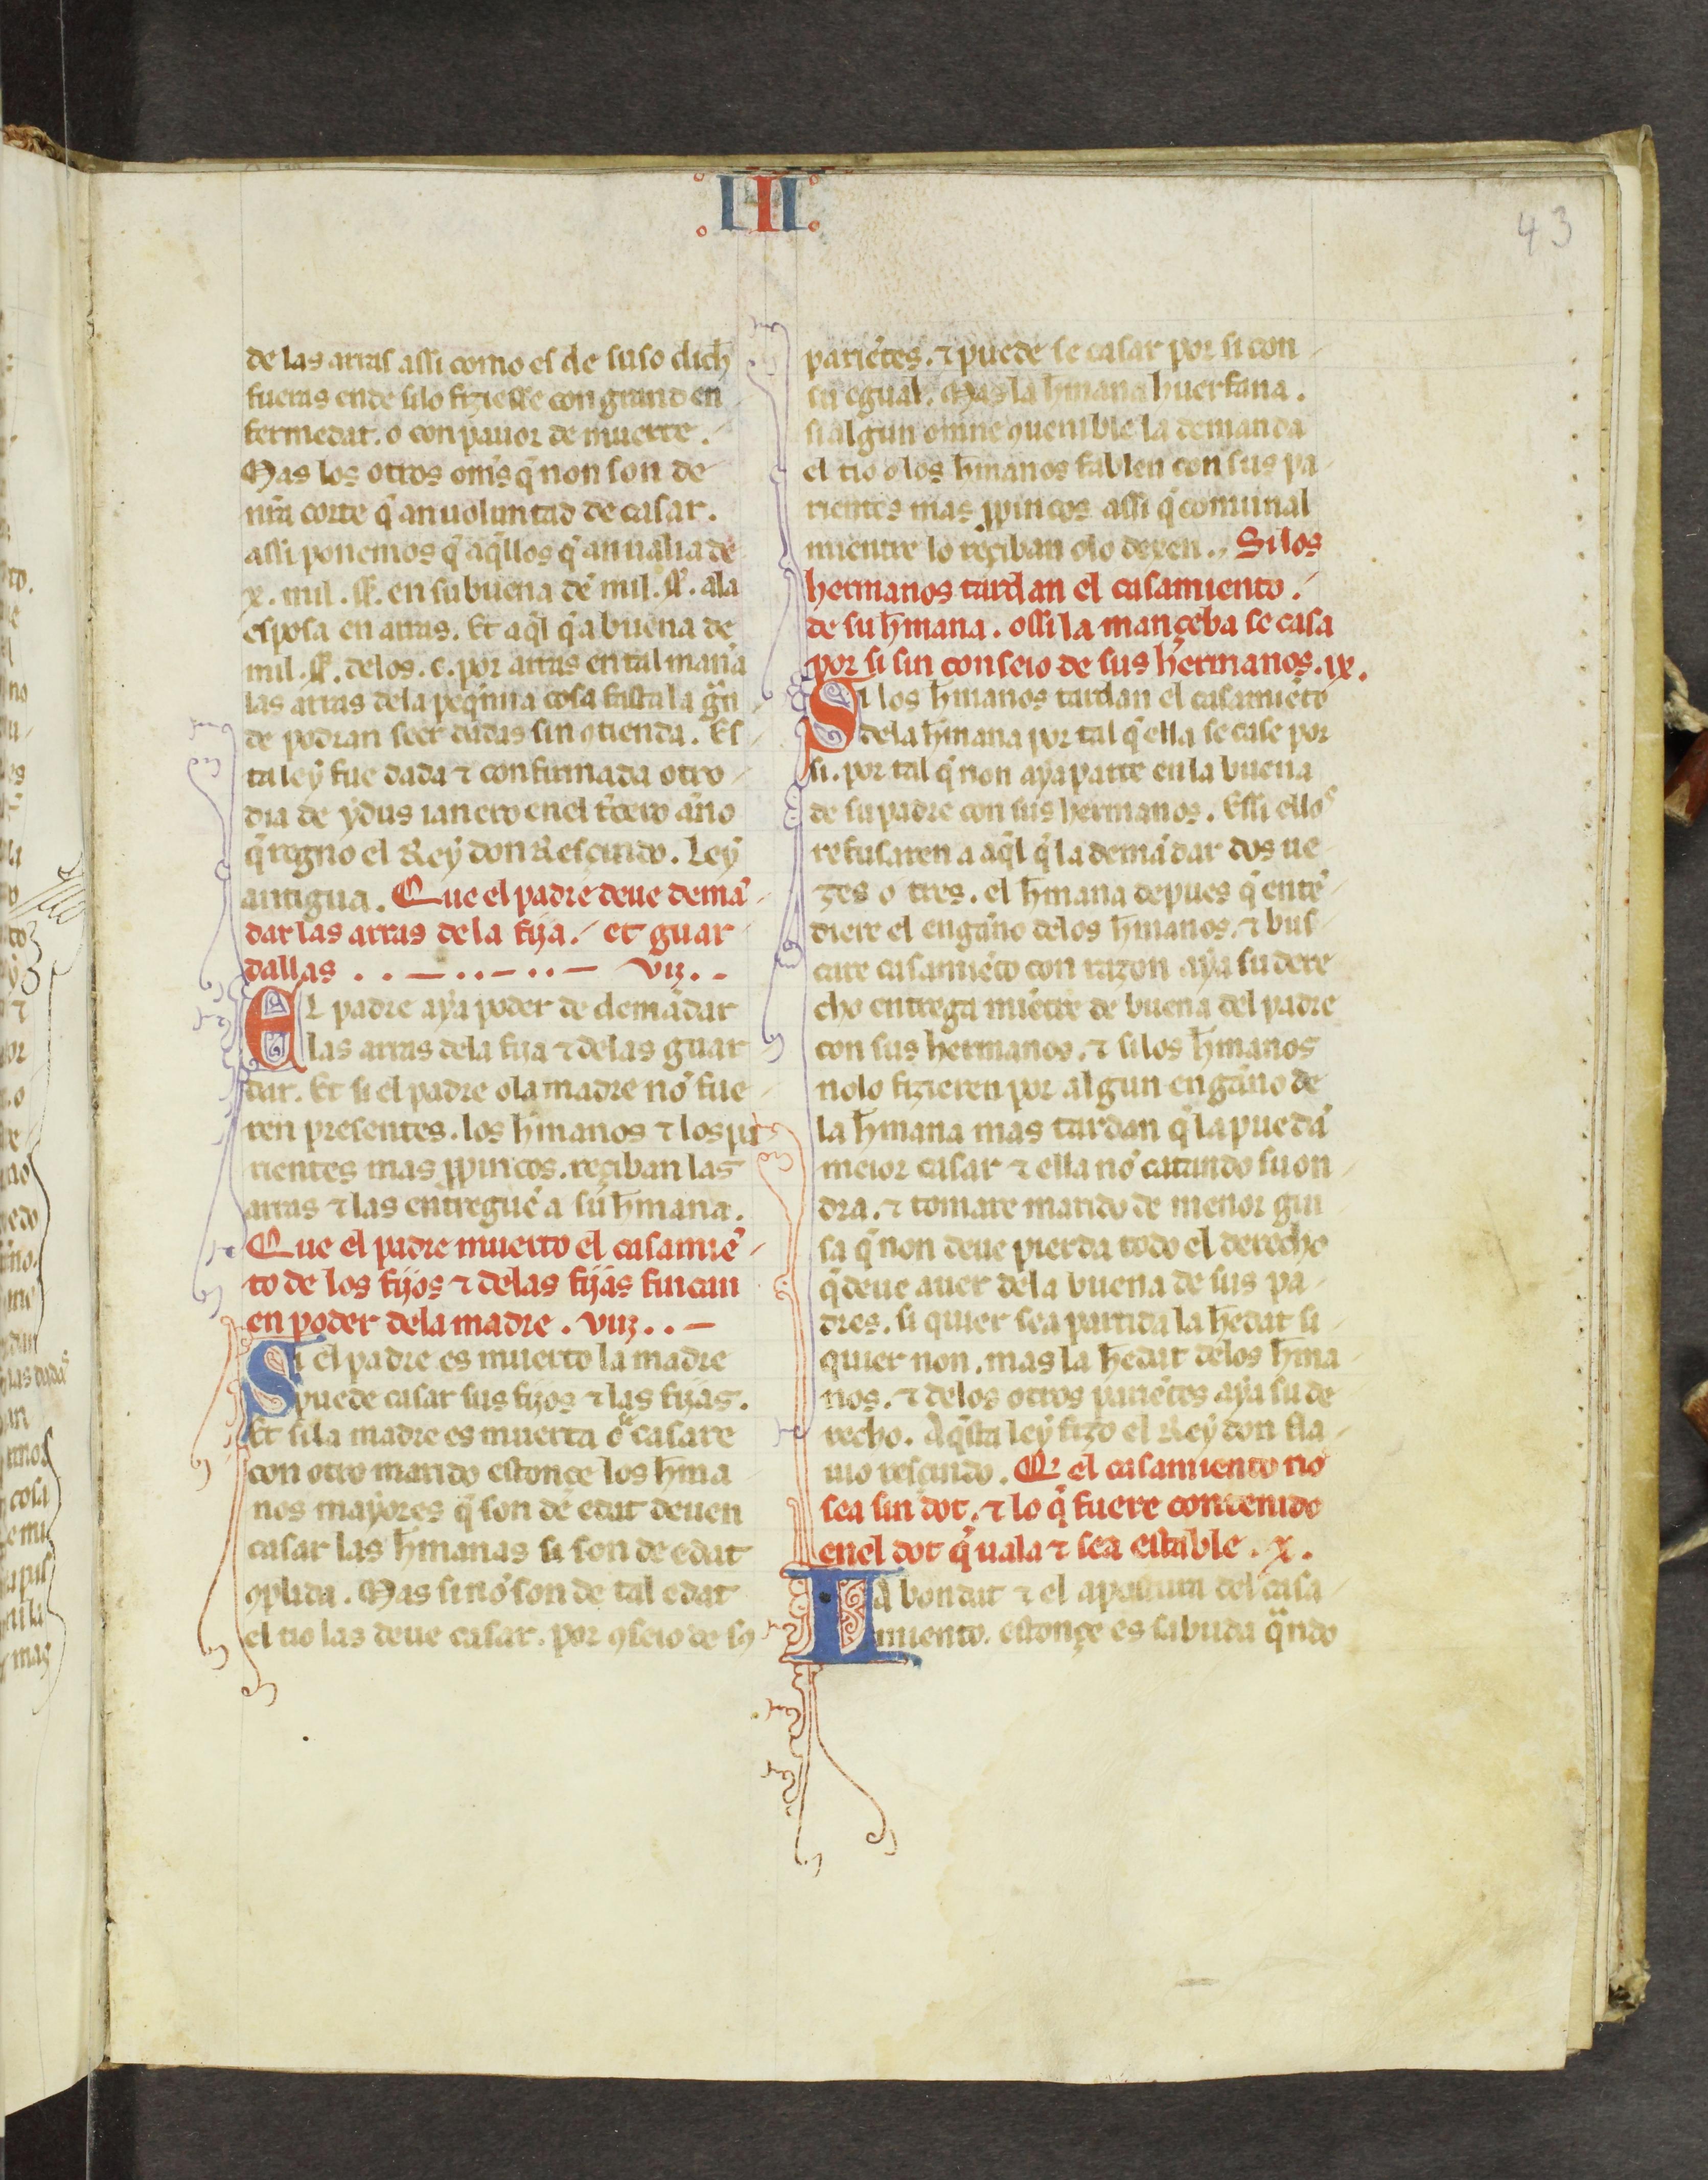 III.
43
de las arras assi como es de suso dich̄
fueras ende silo fiziesse con grand en
fermedat. o con pauor de muerte.
Mas los otros om̄s q̄ non son de
nr̄a corte q̄ an uoluntad de casar.
assi ponemos q̄ aq̄llos q̄ an ualia de
x. mil. ſſ. en su buena dē mil. ſſ. ala
esposa en arras. Et aq̄l q̄ a buena de
mil. ſſ. delos. c. por arras en tal man̄a
las arras dela peq̄nna cosa fasta la gͣn
de podran seer dadas sin ꝯtienda. Es
ta ley fue dada ⁊ confirmada otro
dia de ydus ianero enel t̄cero anno
q̄ regno el Rey don Resçindo. Ley
antigua. Que el padre deue demā
dar las arras de la fija. et guar
dallas . . — . . — . . — vij. .
El padre aya poder de demādar
las arras dela fija ⁊ delas guar
dar. Et si el padre ola madre nō fue
ren presentes. los h̄manos ⁊ los pa
rientes mas ꝓpincos. reçiban las
arras ⁊ las entreguē a su h̄mana.
Que el padre muerto el casamiē
to de los fijos ⁊ delas fijas fincan
en poder dela madre. viij. . —
Si el padre es muerto la madre
puede casar sus fijos ⁊ las fijas.
Et si la madre es muerta o se casare
con otro marido estonçe los h̄ma
nos mayores q̄ son dē edat deuen
casar las h̄manas si son de edat
ꝯplida. Mas si nō son de tal edat
el tio las deue casar. por ꝯseio de sꝯ
pariētes. ⁊ puede se casar por si con
su egual. Mas la h̄mana huerfana.
si algun omne ꝯuenible la demanda
el tio o los h̄manos fablen con sus pa
rientes mas ꝓpincos assi q̄ comunal
mientre lo reçiban olo dexen. Si los
hermanos tardan el casamiento.
de su h̄mana. ossi la mançeba se casa
por si sin conseio de sus hermanos. ix.
Si los h̄manos tardan el casamiēto
dela h̄mana por tal q̄ ella se case por
si. por tal q̄ non aya parte en la buena
de su padre con sus hermanos. Essi ellos
refusaren a aq̄l q̄ la demādar dos ue
zes o tres. el h̄mana depues q̄ entē
diere el enganno delos h̄manos. ⁊ bus
care casamiēto con razon aya su dere
cho entrega miētre de buena del padre
con sus hermanos. ⁊ si los h̄manos
nolo fizieren por algun enganno de
la h̄mana mas tardan q̄ la puedā
meior casar ⁊ ella nō catando su on
dra. ⁊ tomare marido de menor gui
sa q̄ non deue pierda todo el derecho
q̄ deue auer dela buena de sus pa
dres. si quier sea partida la h̄edat si
quier non. mas la h̄edat delos h̄ma
nos. ⁊ delos otros pariētes aya su de
recho. Aq̄sta ley fizo el Rey don fla
uio resçindo. Q̄ el casamiento nō
sea sin dot. ⁊ lo q̄ fuere contenido
enel dot q̄ uala ⁊ sea estable. x.
La bondat ⁊ el apostura del casa
miento. estonçe es sabuda q̄ndo